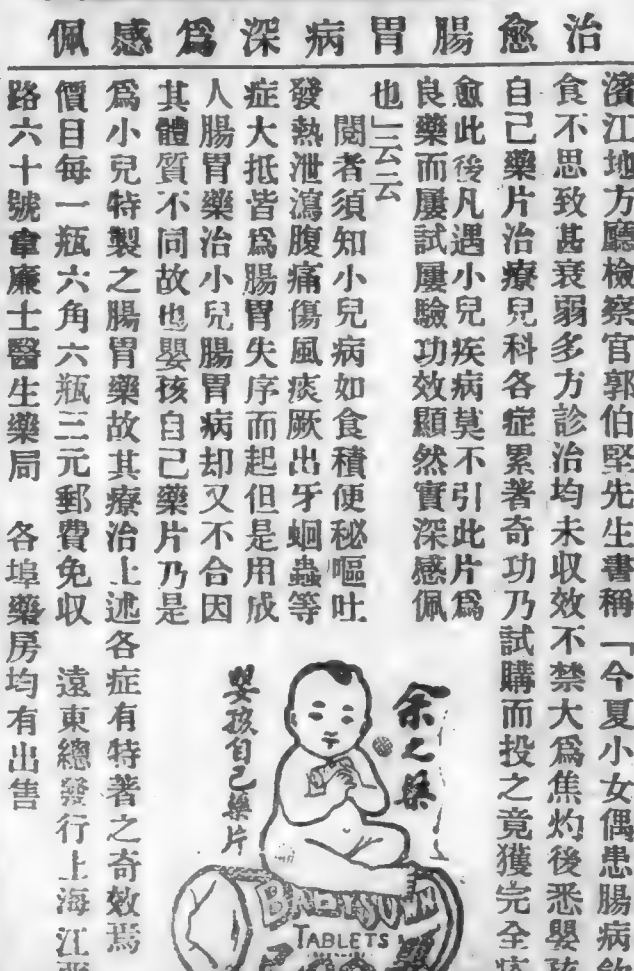 治愈腸胃病深爲感佩
濱江地方廳檢察官郭伯堅先生書稱「今夏小女偶患腸病飲
食不思致甚衰弱多方診治均未収效不禁大爲焦灼後悉嬰孩
自己藥片治療兒科各症累著奇功乃試購而投之竟獲完全痊
愈此後凡遇小兒疾病莫不引此片爲
良藥而屢試屢驗功效顯然實深感佩
也」云云
閱者須知小兒病如食積便秘嘔吐
發熱泄瀉腹痛傷風痰厥出牙蛔蟲等
症大抵皆爲腸胃失序而起但是用成
人腸胃藥治小兒腸胃病却又不合因
其體質不同故也嬰孩自己藥片乃是
爲小兒特製之腸胃藥故其療治上述各症有特著之奇效焉
價目每一瓶六角六瓶三元郵費免収 遠東總發行上海江西
路六十號韋廉士醫生藥局 各埠藥房均有出售
余之藥
嬰孩自己藥片
BABY'S OWN
TABLETS